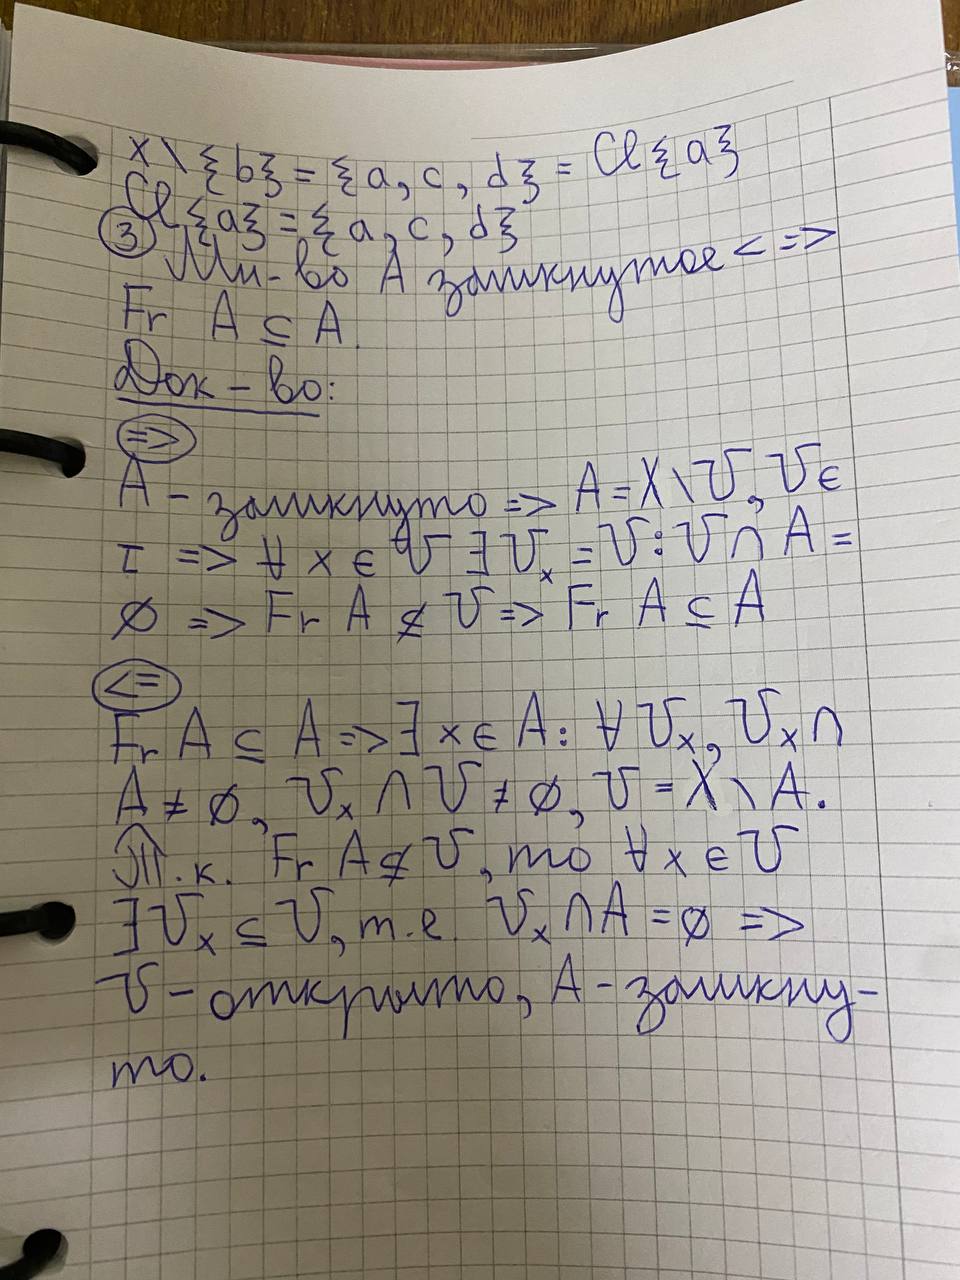 X\{b} = {a, c, d} = Cl{a}
Cl{a} = {a, c, d}
③ Мн-во A замкнутое <=>
Fr A ⊆ A.
Док-во:
=>
A - замкнуто => A = X\U, U ∈
τ => ∀ x ∈ U ∃ Uₓ = U : U ∩ A =
∅ => Fr A ⊈ U => Fr A ⊆ A
<=
Fr A ⊆ A => ∃ x ∈ A : ∀ Uₓ, Uₓ ∩
A ≠ ∅, Uₓ ∩ U ≠ ∅, U = X \ A.
Т.к. Fr A ⊈ U, то ∀ x ∈ U
∃ Uₓ ⊆ U, т.е. Uₓ ∩ A = ∅ =>
U - открыто, A - замкну-
то.